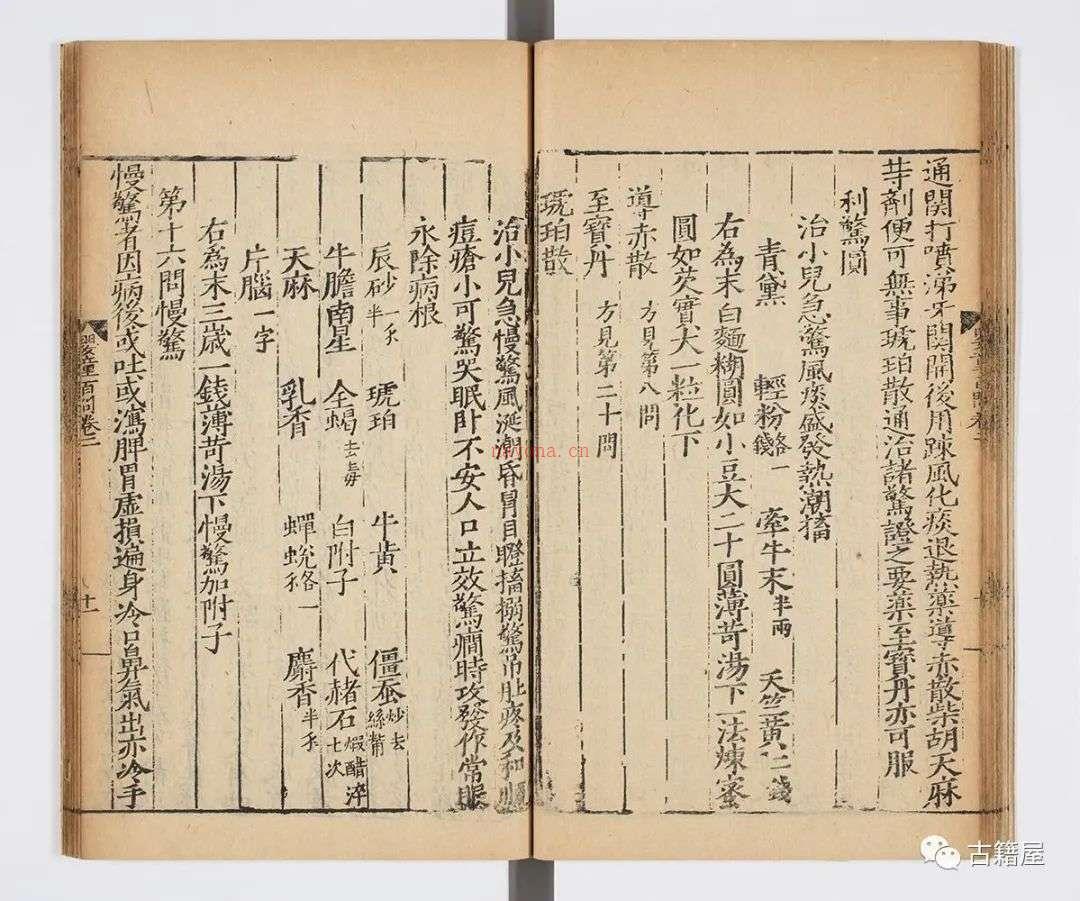 通関打噴涕牙関開後用踈風化痰退熱藥導赤散柴胡天麻
等劑便可無事琥珀散通治諸驚證之要藥至寳丹亦可服
利驚圓
治小兒急驚風痰盛發熱潮搐
青黛 輕粉各一錢 牽牛末半兩 天竺黃二錢
右為末白麵糊圓如小豆大二十圓薄荷湯下一法煉蜜
圓如芡實大一粒化下
導赤散 方見第八問
至寳丹 方見第二十問
琥珀散
治小兒急慢驚風涎潮昏冒目瞪搐搦驚吊肚疼及和順
痘瘡小可驚哭眠卧不安人口立效驚癇時攻發作常服
永除病根
辰砂一錢半 琥珀 牛黃 僵蚕炒去絲觜
牛膽南星 全蝎去毒 白附子 代赭石煅醋淬七次
天麻 乳香 蟬蛻各一錢 麝香半錢
片腦一字
右爲末三歲一錢薄荷湯下慢驚加附子
第十六問慢驚
慢驚者因病後或吐或瀉脾胃虛損遍身冷口鼻氣出亦冷手
嬰童百問卷二
十一
nayona.cn
古籍屋